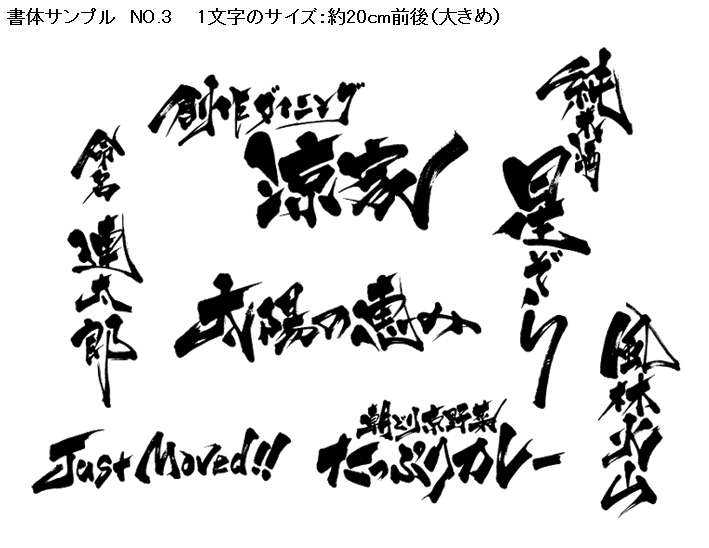 書体サンプル　NO.3　1文字のサイズ：約20cm前後（大きめ）
創作ダイニング
涼家
純米酒
星ぞら
命名
連太郎
太陽の恵み
風林火山
Just Moved!!
朝どり京野菜
たっぷりカレー